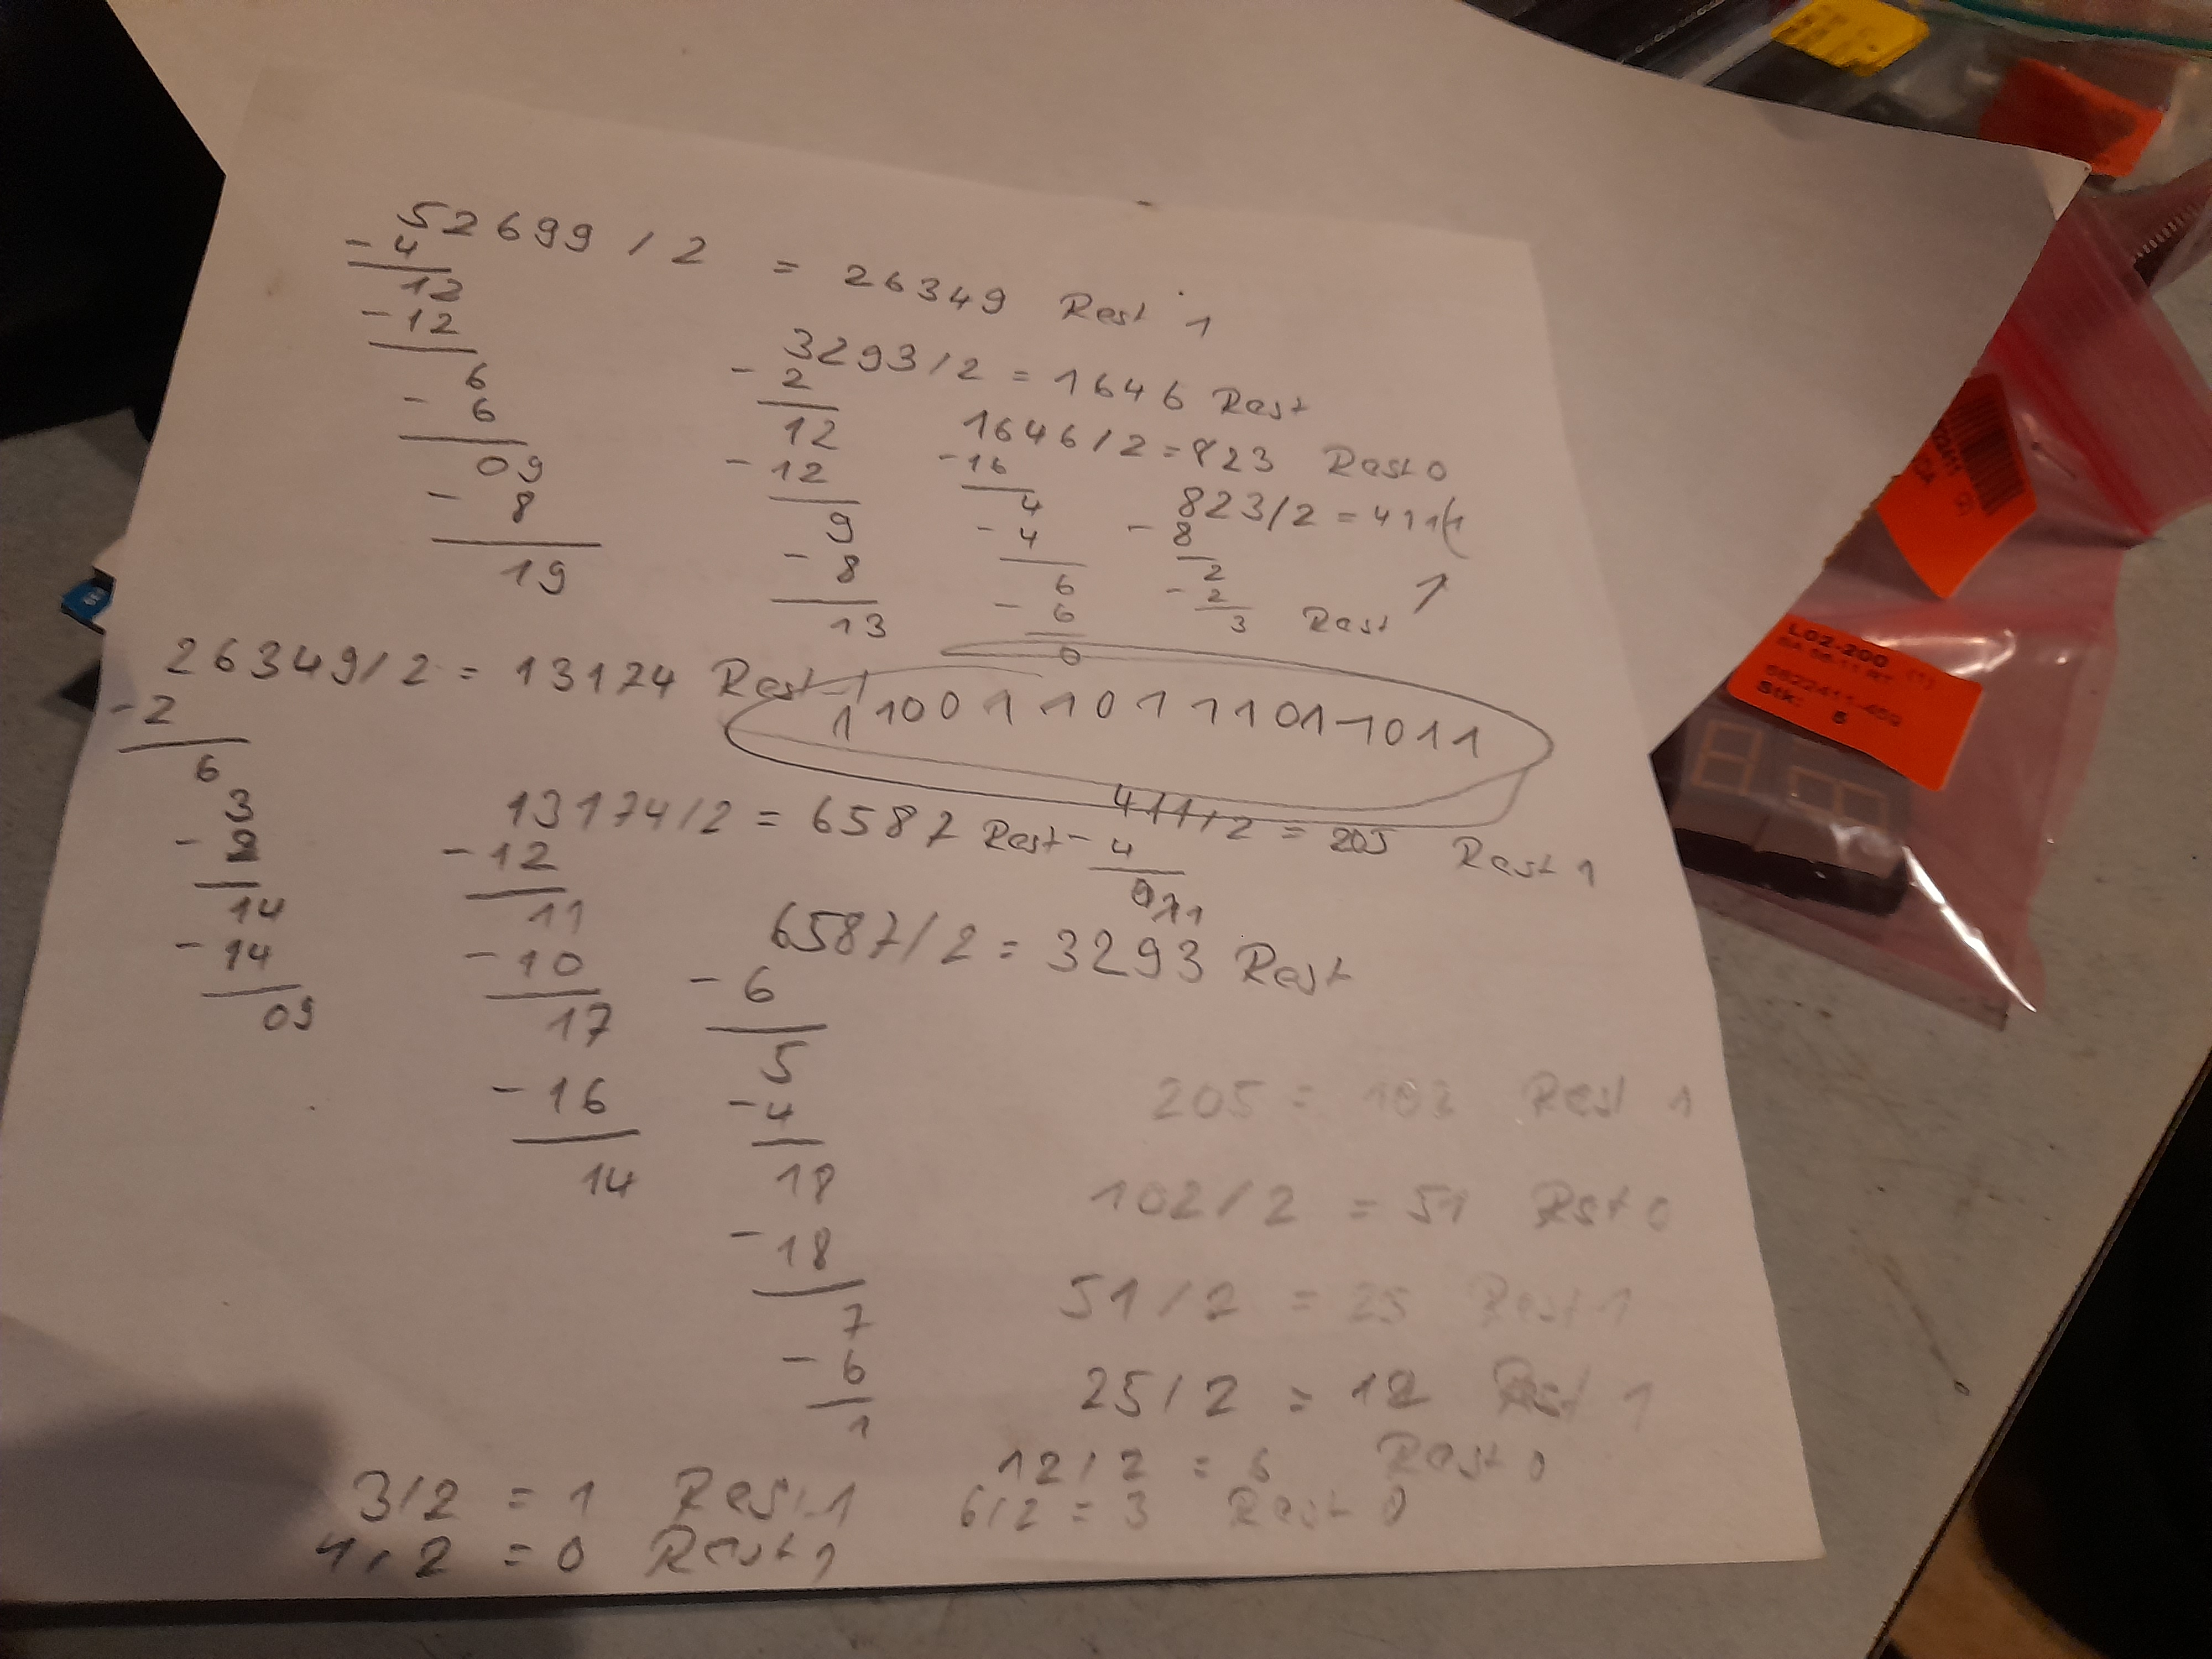 52699 / 2 = 26349 Rest 1
- 4
12
- 12
6
- 6
09
- 8
19
3293 / 2 = 1646 Rest
- 2
12
- 12
9
- 8
13
1646 / 2 = 823 Rest 0
- 16
4
- 4
6
- 6
0
823 / 2 = 411
- 8
2
- 2
3 Rest 1
26349 / 2 = 13174 Rest 1
- 2
6
3
- 2
14
- 14
09
1100110111011011
13174 / 2 = 6587 Rest
- 12
11
- 10
17
- 16
14
411 / 2 = 205 Rest 1
- 4
6587 / 2 = 3293 Rest
- 6
5
- 4
18
- 18
7
- 6
1
205 = 102 Rest 1
102 / 2 = 51 Rst 0
51 / 2 = 25 Rest 1
25 / 2 = 12 Rest 1
12 / 2 = 6 Rest 0
6 / 2 = 3 Rest 0
3 / 2 = 1 Rest 1
1 / 2 = 0 Rest 1
L02-200 (1)
5822411-459
Stk: 5